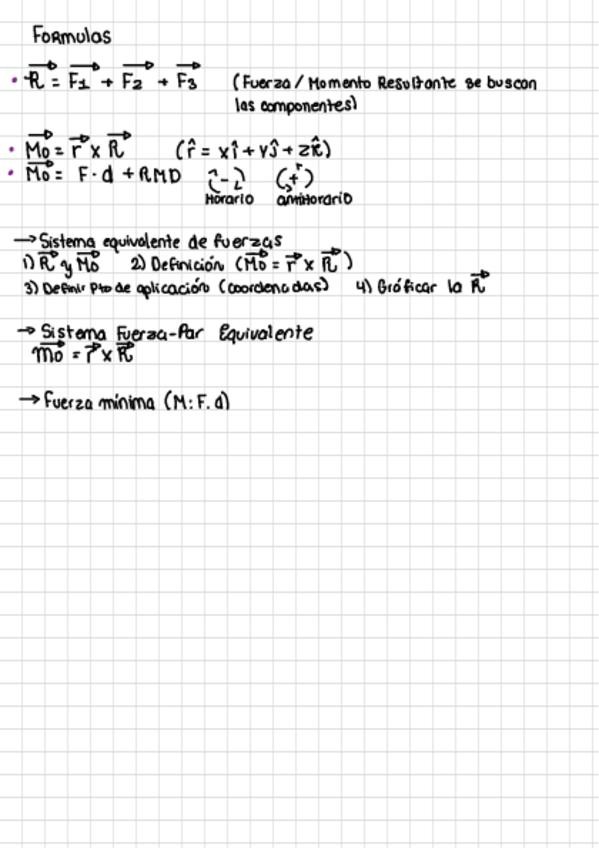 Formulas
• R = F1 + F2 + F3 (Fuerza / Momento Resultante se buscan
las componentes)
• Mo = r x R (r̂ = xî + yĵ + zk̂)
• Mo = F · d + RMD (-) (+)
Horario antihorario
→ Sistema equivalente de fuerzas
1) R y Mo 2) Definición (Mo = r x R)
3) Definir Pto de aplicación (coordenadas) 4) Gráficar la R
→ Sistema Fuerza-Par Equivalente
mo = r x R
→ Fuerza mínima (M: F. d)